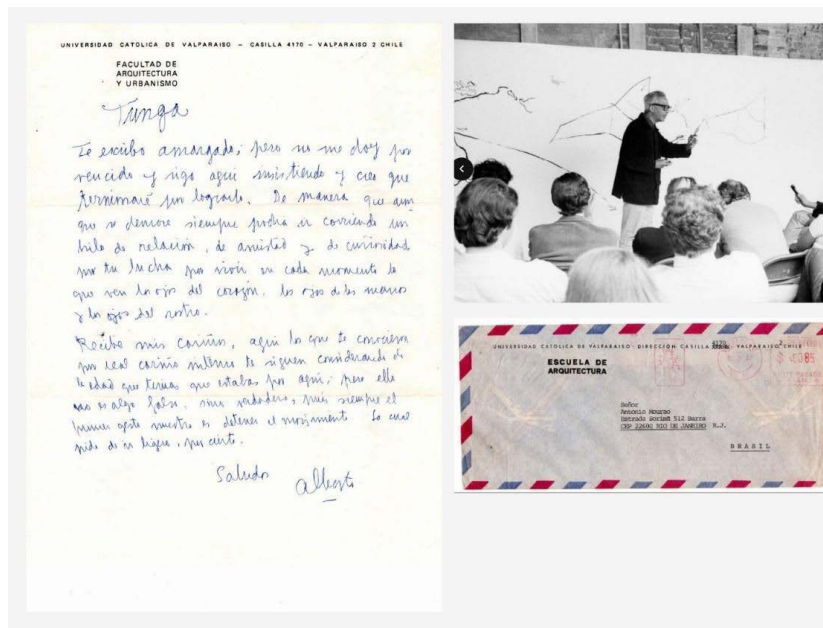 UNIVERSIDAD CATOLICA DE VALPARAISO – CASILLA 4170 – VALPARAISO 2 CHILE
FACULTAD DE
ARQUITECTURA
Y URBANISMO
Tunga
Te escribo amargado; pero no me doy por
vencido y sigo aquí insistiendo y creo que
terminaré por lograrlo. De manera que aun
que se demore siempre podría ir corriendo un
hilo de relación, de amistad y de curiosidad
por tu lucha por vivir en cada momento lo
que ven los ojos del corazón, los ojos de las manos
y los ojos del rostro.
Recibe mis cariños, aquí los que te conocieron
por real cariño te siguen considerando de
la edad que tenías que estabas por aquí; pero ello
no es algo falso, sino verdadero, pues siempre el
primer gesto nuestro es detener el movimiento. Lo cual
pide ligero, por cierto.
Saludos
Alberto
UNIVERSIDAD CATOLICA DE VALPARAISO - DIRECCION CASILLA 4170 - VALPARAISO 2 CHILE
ESCUELA DE
ARQUITECTURA
$ 0085
Señor
Antonio Mourao
Estrada 512 Barra
CEP 22600 RIO DE JANEIRO R.J.
BRASIL